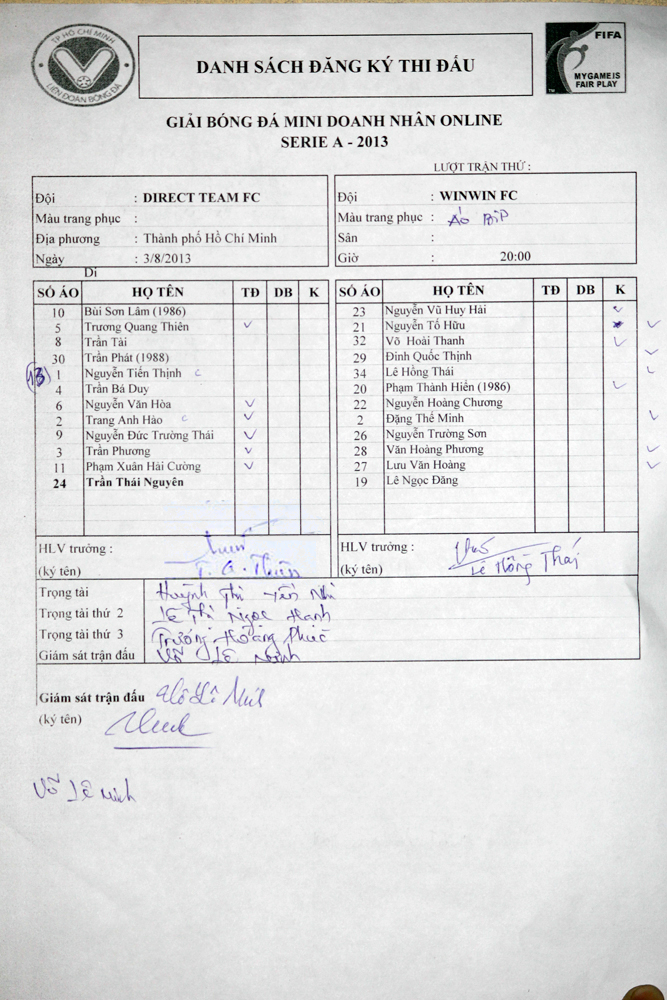 TP HỒ CHÍ MINH
LIÊN ĐOÀN BÓNG ĐÁ
DANH SÁCH ĐĂNG KÝ THI ĐẤU
FIFA
MY GAME IS
FAIR PLAY
TM
GIẢI BÓNG ĐÁ MINI DOANH NHÂN ONLINE
SERIE A - 2013
LƯỢT TRẬN THỨ :
Đội : DIRECT TEAM FC
Màu trang phục :
Địa phương : Thành phố Hồ Chí Minh
Ngày : 3/8/2013
Di
Đội : WINWIN FC
Màu trang phục : Áo BIP
Sân :
Giờ : 20:00
SỐ ÁO HỌ TÊN TĐ DB K
10 Bùi Sơn Lâm (1986)
5 Trương Quang Thiên ✓
8 Trần Tài
30 Trần Phát (1988)
13 1 Nguyễn Tiến Thịnh c
4 Trần Bá Duy
6 Nguyễn Văn Hòa ✓
2 Trang Anh Hào c ✓
9 Nguyễn Đức Trường Thái ✓
3 Trần Phương ✓
11 Phạm Xuân Hải Cường ✓
24 Trần Thái Nguyên
SỐ ÁO HỌ TÊN TĐ DB K
23 Nguyễn Vũ Huy Hải ✓
21 Nguyễn Tố Hữu ✓
32 Võ Hoài Thanh ✓
29 Đinh Quốc Thịnh ✓
34 Lê Hồng Thái ✓
20 Phạm Thành Hiển (1986) ✓
22 Nguyễn Hoàng Chương
2 Đặng Thế Minh ✓
26 Nguyễn Trường Sơn
28 Văn Hoàng Phương ✓
27 Lưu Văn Hoàng ✓
19 Lê Ngọc Đăng
HLV trưởng :
(ký tên) T. Q. Thiên
HLV trưởng :
(ký tên) Lê Hồng Thái
Trọng tài Huỳnh Thị Yến Nhi
Trọng tài thứ 2 Lê Thị Ngọc Hạnh
Trọng tài thứ 3 Trương Hoàng Phúc
Giám sát trận đấu Võ Lê Minh
Giám sát trận đấu Võ Lê Minh
(ký tên)
Võ Lê Minh